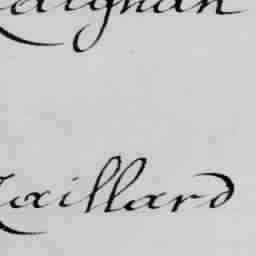 aignan
aillard